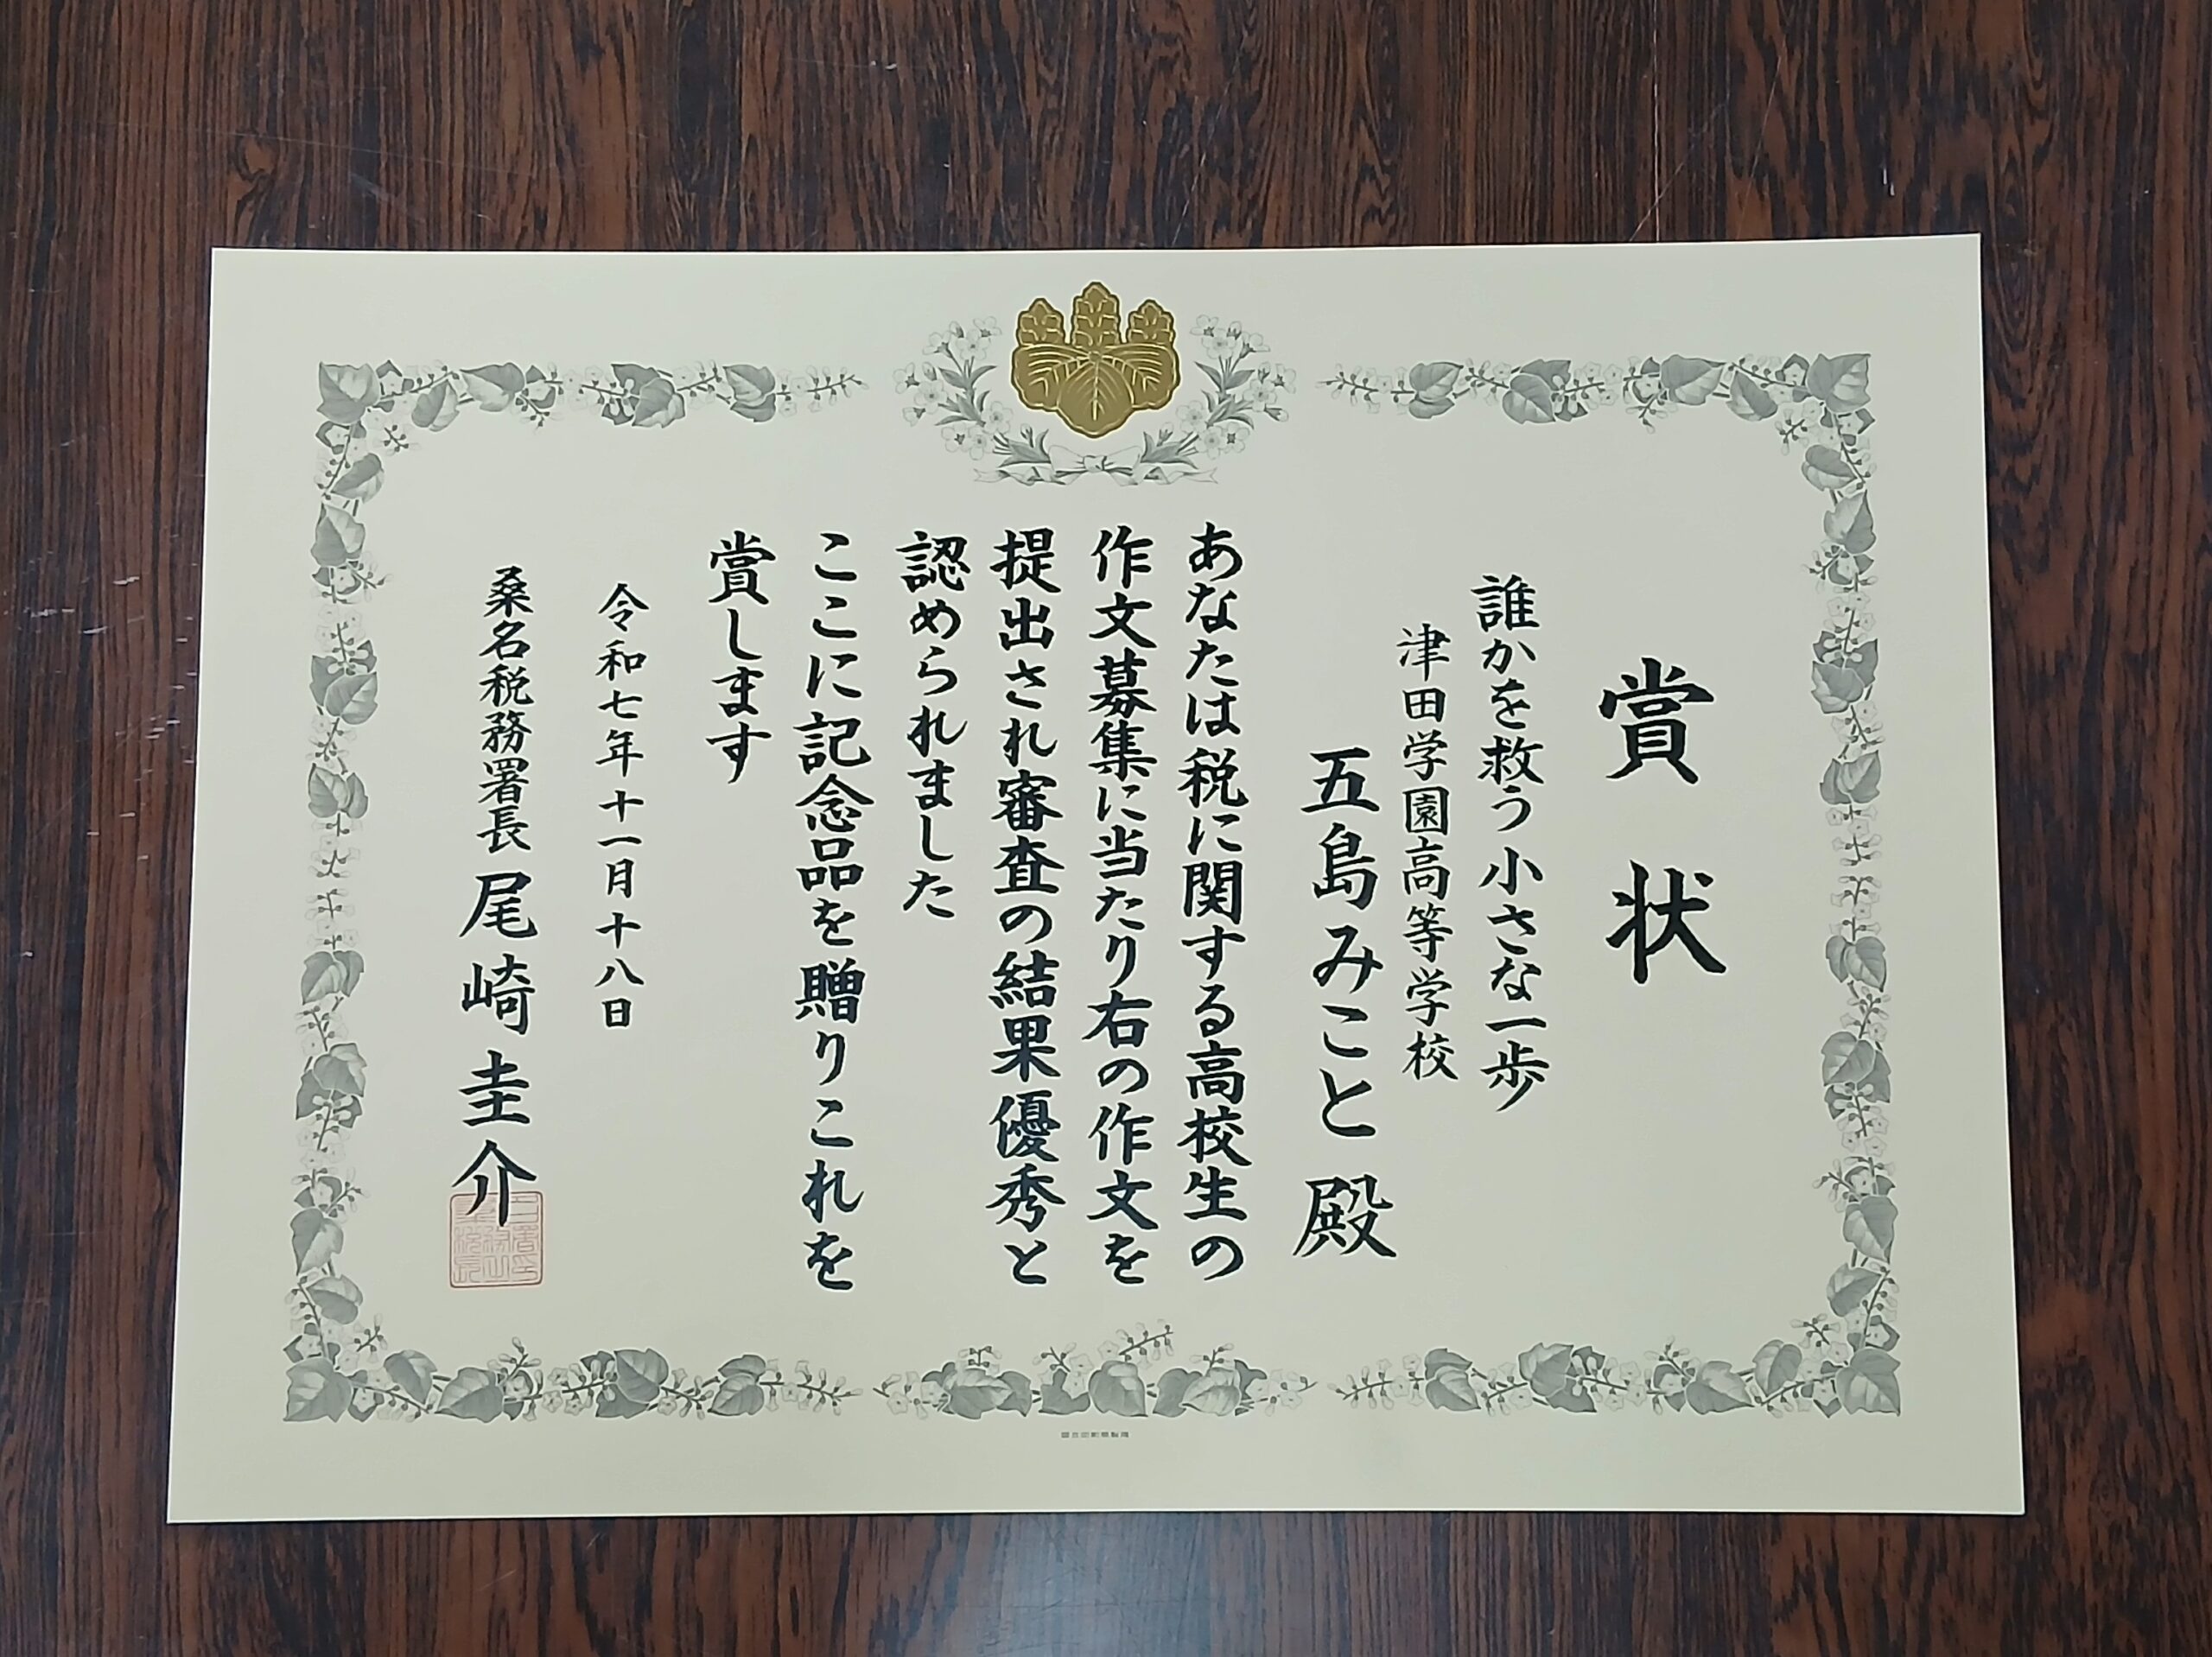 賞状
誰かを救う小さな一歩
津田学園高等学校
五島みこと殿
あなたは税に関する高校生の
作文募集に当たり右の作文を
提出され審査の結果優秀と
認められました
ここに記念品を贈りこれを
賞します
令和七年十一月十八日
桑名税務署長 尾崎圭介